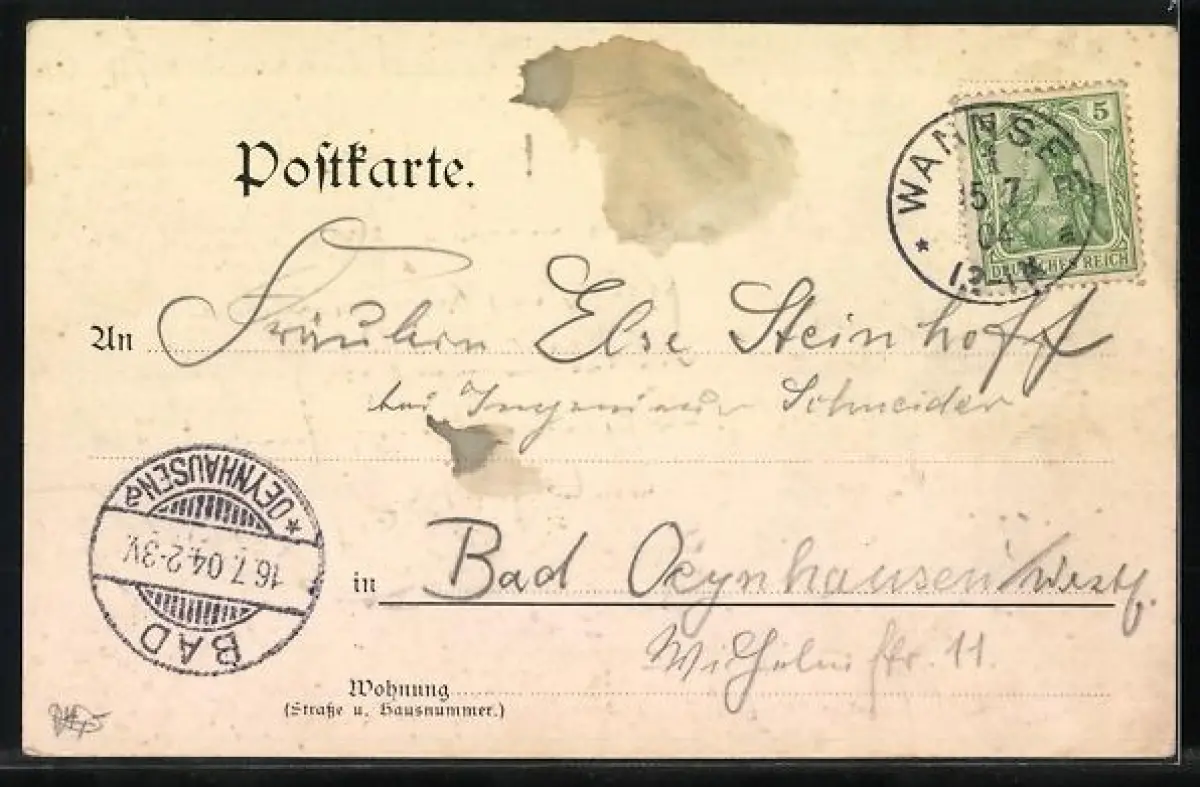 Postkarte.
WANNSEE
5 7
04
a
5
DEUTSCHES REICH
An Fräulein Else Steinhoff
bei Ingenieur Schneider
in Bad Oeynhausen/Westf.
Wilhelmstr. 11.
Wohnung
(Straße u. Hausnummer.)
BAD
16.7.04.2-3V.
* OEYNHAUSEN a